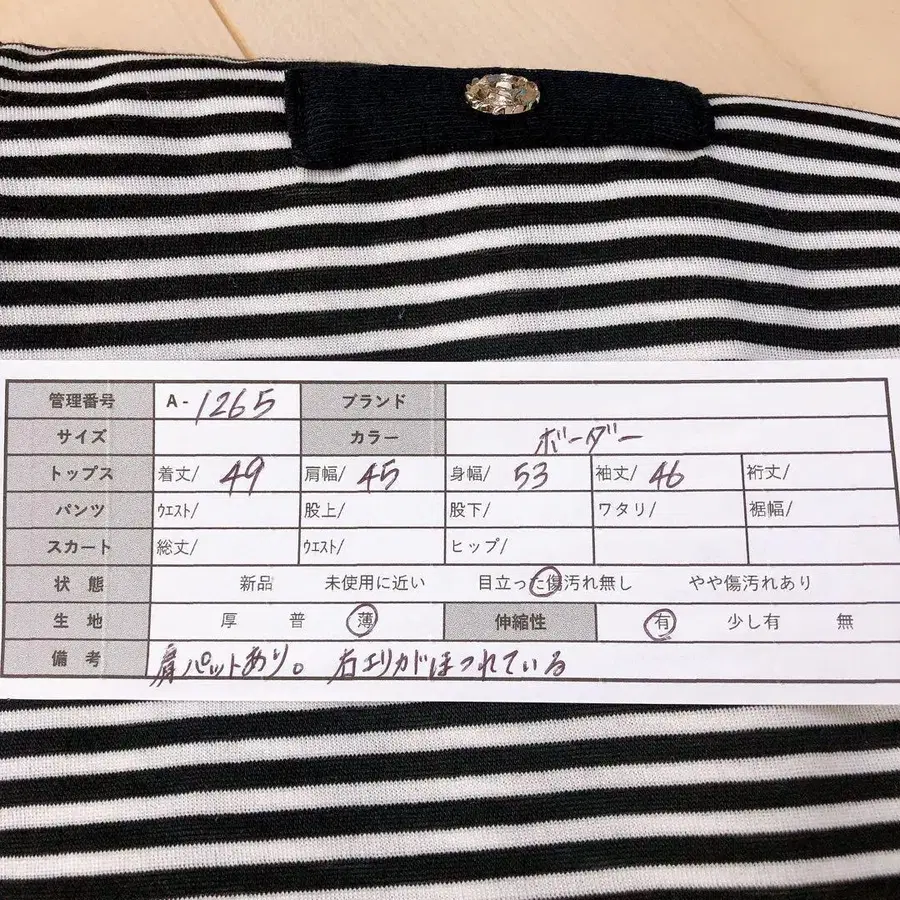 管理番号 A-1265 ブランド
サイズ カラー ボーダー
トップス 着丈/ 49 肩幅/ 45 身幅/ 53 袖丈/ 46 裄丈/
パンツ ｳｴｽﾄ/ 股上/ 股下/ ワタリ/ 裾幅/
スカート 総丈/ ｳｴｽﾄ/ ヒップ/
状態 新品 未使用に近い 目立った傷汚れ無し やや傷汚れあり
生地 厚 普 薄 伸縮性 有 少し有 無
備考 肩パットあり。 右エリがほつれている